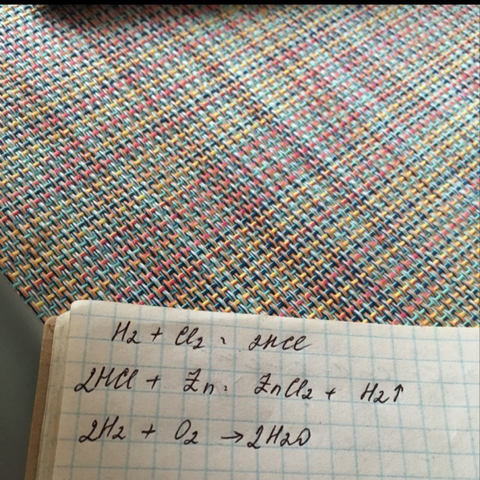 H2 + Cl2 = 2HCl
2HCl + Zn = ZnCl2 + H2↑
2H2 + O2 → 2H2O